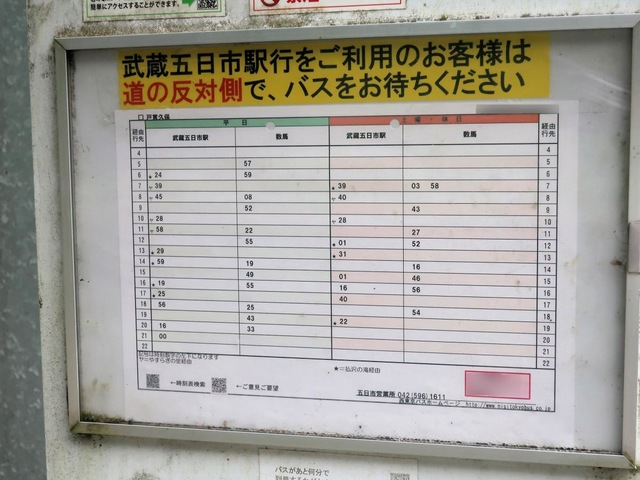 簡単にアクセスすることができます。
武蔵五日市駅行をご利用のお客様は
道の反対側で、バスをお待ちください
平 日 土曜・休日
経由 行先 武蔵五日市駅 数馬 武蔵五日市駅 数馬 経由 行先
4 4
5 57 5
6 ★24 59 6
7 ヤ39 ★39 03 58 7
8 ヤ45 08 ヤ40 8
9 52 43 9
10 ヤ28 ヤ28 10
11 ヤ58 22 27 11
12 55 ★01 52 12
13 ★29 ★31 13
14 ★59 19 16 14
15 49 01 46 15
16 ★19 55 16 56 16
17 ★25 40 17
18 56 25 54 18
19 43 ★22 19
20 16 33 20
21 00 21
22 22
記号は時刻数字の左下になります
ヤ=やすらぎの里経由 ★=払沢の滝経由
←時刻表検索 ←ご意見ご要望
五日市営業所 042(596)1611
西東京バスホームページ
バスがあと何分で